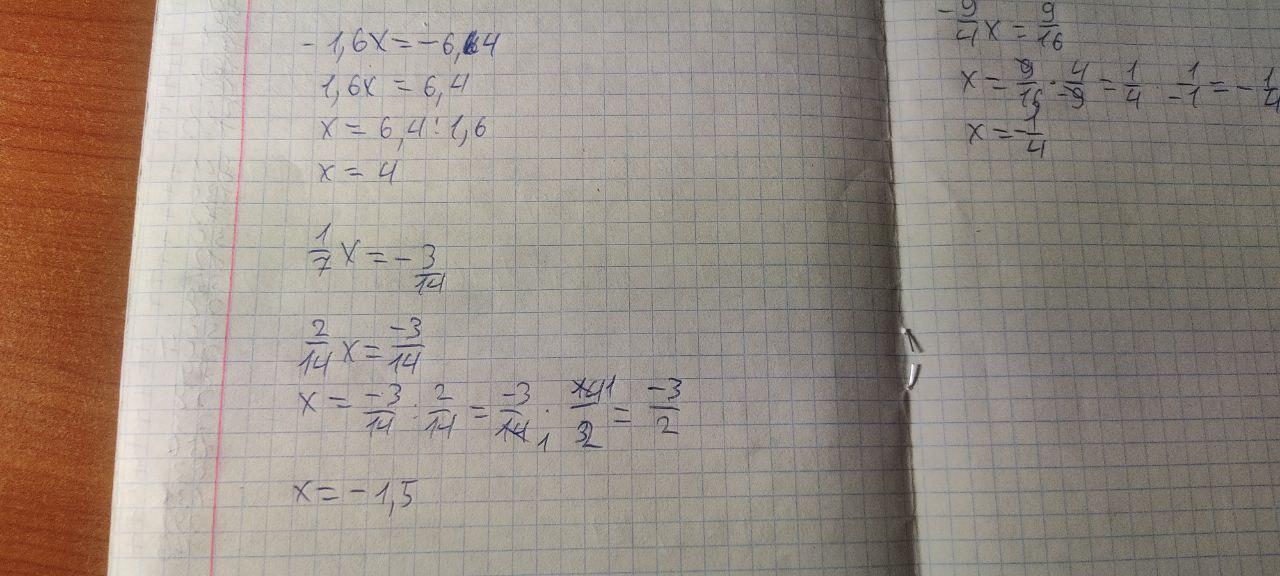 - 1,6x = - 6,4
1,6x = 6,4
x = 6,4 : 1,6
x = 4
1/7 x = - 3/14
2/14 x = -3/14
x = -3/14 : 2/14 = -3/14 · 14/2 = -3/2
x = - 1,5
-9/4 x = 9/16
x = 9/16 · 4/-9 = 1/4 · 1/-1 = - 1/4
x = - 1/4